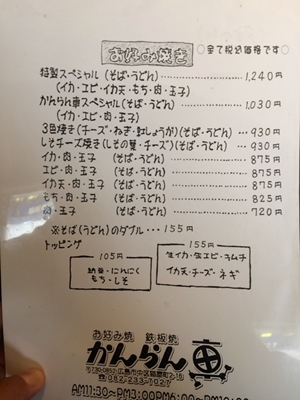 お好み焼き
○全て税込価格です○
特製スペシャル(そば・うどん)………1,240円
(イカ・エビ・イカ天・もち・肉・玉子)
かんらん車スペシャル(そば・うどん)………1,030円
(イカ・エビ・肉・玉子)
3色焼き(チーズ・ねぎ・紅しょうが)(そば・うどん)…930円
しそチーズ焼き(しその葉・チーズ)(そば・うどん)…930円
イカ・肉・玉子 (そば・うどん)………875円
エビ・肉・玉子 (そば・うどん)………875円
イカ天・肉・玉子 (そば・うどん)………875円
もち・肉・玉子 (そば・うどん)………825円
肉・玉子 (そば・うどん)………720円
※そば(うどん)のダブル…155円
トッピング
105円
納豆・にんにく
もち・しそ
155円
生イカ・生エビ・キムチ
イカ天・チーズ・ネギ
お好み焼 鉄板焼
かんらん車
〒730-0852 広島市中区猫屋町2-15
AM11:30〜PM3:00